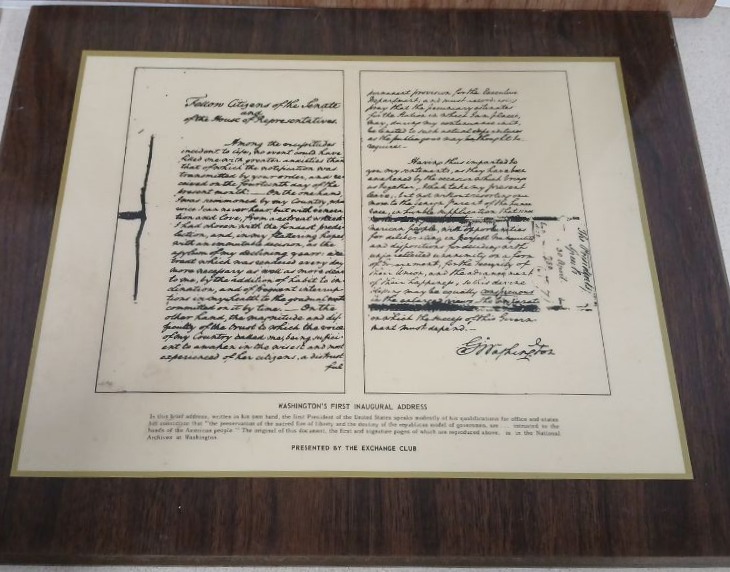 Fellow Citizens of the Senate
and
of the House of Representatives.
Among the vicissitudes
incident to life, no event could have
filled me with greater anxieties than
that of which the notification was
transmitted by your order, and re-
ceived on the fourteenth day of the
present month. — On the one hand,
I was summoned by my Country, whose
voice I can never hear but with venera-
tion and love, from a retreat which
I had chosen with the fondest predi-
lection, and, in my flattering hopes,
with an immutable decision, as the
asylum of my declining years: a re-
treat which was rendered every day
more necessary as well as more dear
to me, by the addition of habit to in-
clination, and of frequent interrup-
tions in my health to the gradual waste
committed on it by time. — On the
other hand, the magnitude and dif-
ficulty of the trust to which the voice
of my Country called me, being suffici-
ent to awaken in the wisest and most
experienced of her citizens, a distrust
ful
permanent provision for the Executive
Department, and must accordingly
pray that the pecuniary estimates
for the station in which I am placed,
may, during my continuance in it,
be limited to such actual expenditures
as the public good may be thought to
require. —
Having thus imparted to
you my sentiments, as they have been
awakened by the occasion which brings
us together, I shall take my present
leave; but not without resorting once
more to the benign Parent of the human
race, in humble supplication that since
merican people, with opportunities
for deliberating in perfect tranquility
and dispositions for deciding with
unparalleled unanimity on a form
of Government, for the security of
their Union, and the advancement
of their happiness; so his divine
blessing may be equally conspicuous
in the enlarged views, the temperate
on which the success of this Govern-
ment must depend. —
G Washington
WASHINGTON'S FIRST INAUGURAL ADDRESS
In this brief address, written in his own hand, the first President of the United States speaks modestly of his qualifications for office and states
his conviction that "the preservation of the sacred fire of liberty and the destiny of the republican model of government, are ... intrusted to the
hands of the American people." The original of this document, the first and signature pages of which are reproduced above, is in the National
Archives at Washington.
PRESENTED BY THE EXCHANGE CLUB